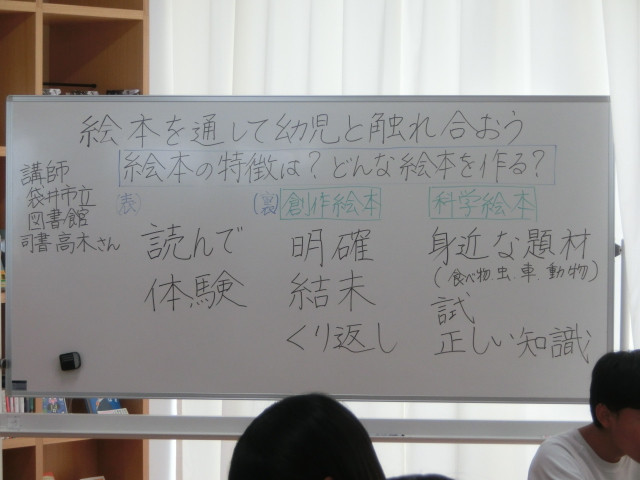 絵本を通して幼児と触れ合おう
絵本の特徴は?どんな絵本を作る?
講師
袋井市立
図書館
司書 高木さん
(表)
読んで
体験
(裏)創作絵本
明確
結末
くり返し
科学絵本
身近な題材
(食べ物、虫、車、動物)
試
正しい知識